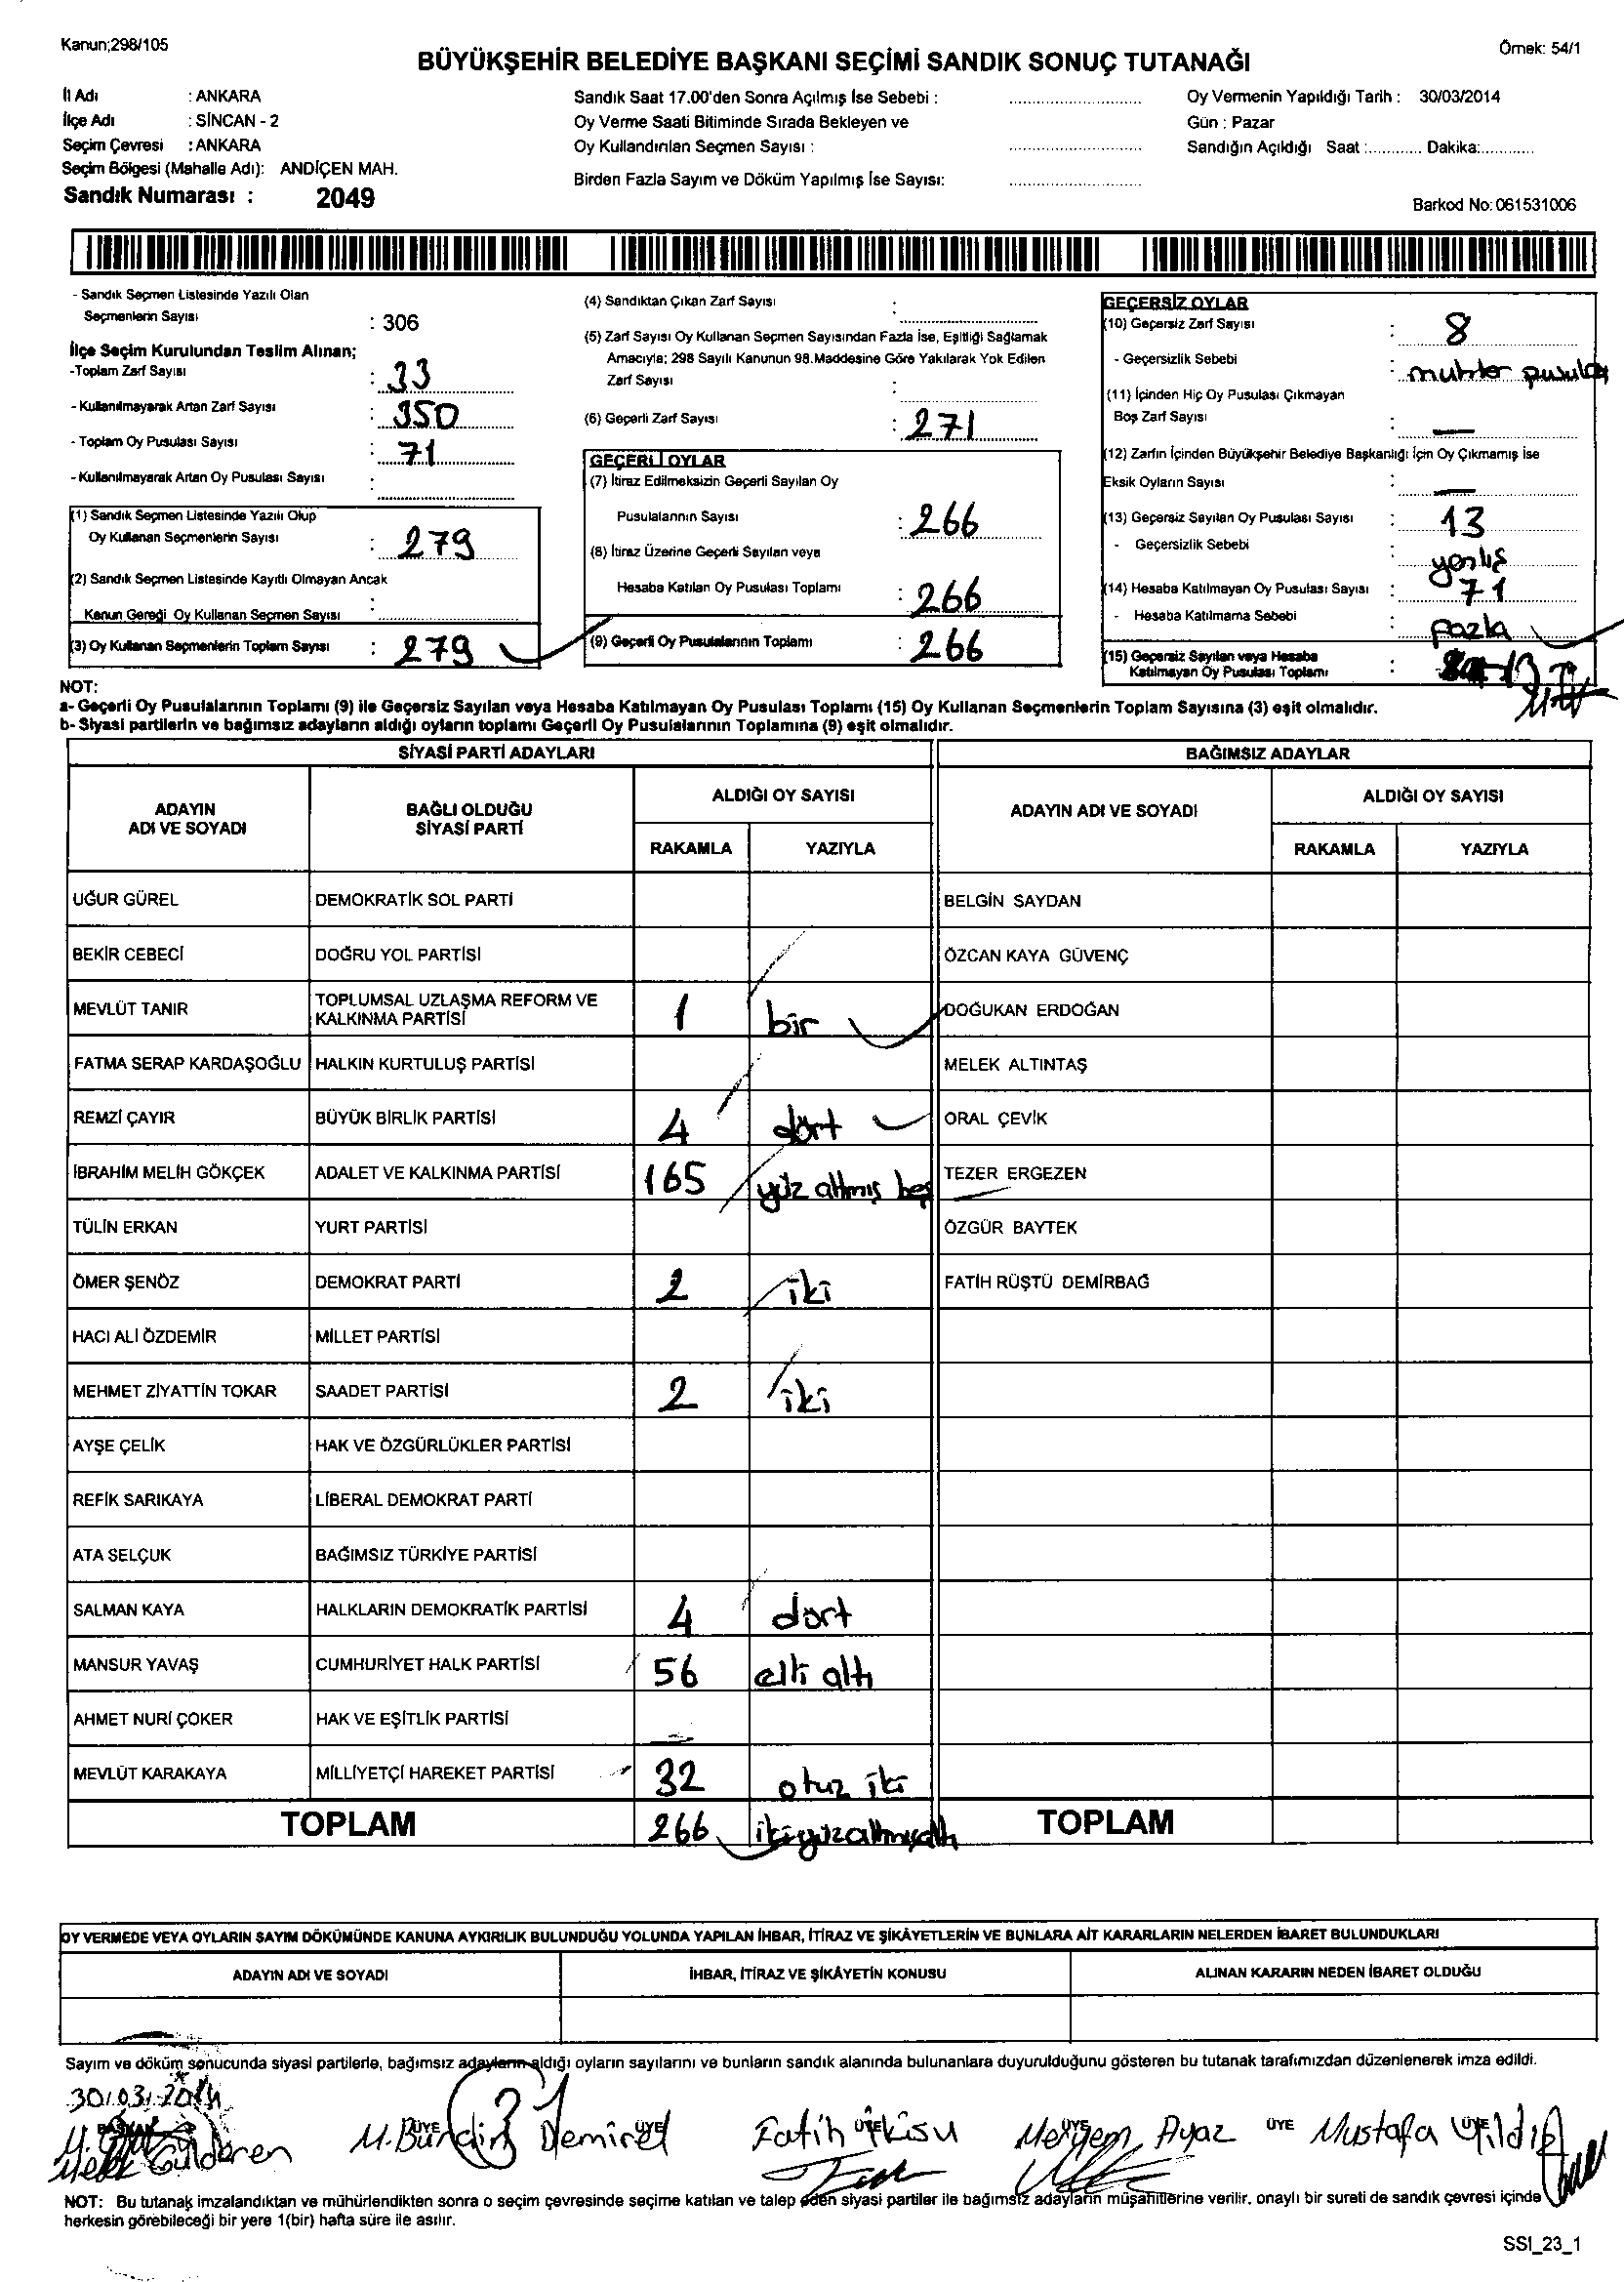 Kanun;298/105
Örnek: 54/1
BÜYÜKŞEHİR BELEDİYE BAŞKANI SEÇİMİ SANDIK SONUÇ TUTANAĞI
İl Adı : ANKARA
İlçe Adı : SİNCAN - 2
Seçim Çevresi : ANKARA
Seçim Bölgesi (Mahalle Adı): ANDİÇEN MAH.
Sandık Numarası : 2049
Sandık Saat 17.00'den Sonra Açılmış İse Sebebi :
Oy Verme Saati Bitiminde Sırada Bekleyen ve
Oy Kullandırılan Seçmen Sayısı :
Birden Fazla Sayım ve Döküm Yapılmış İse Sayısı:
Oy Vermenin Yapıldığı Tarih : 30/03/2014
Gün : Pazar
Sandığın Açıldığı Saat :............ Dakika:............
Barkod No: 061531006
- Sandık Seçmen Listesinde Yazılı Olan
Seçmenlerin Sayısı : 306
İlçe Seçim Kurulundan Teslim Alınan;
-Toplam Zarf Sayısı : 33
- Kullanılmayarak Artan Zarf Sayısı : 350
- Toplam Oy Pusulası Sayısı : 71
- Kullanılmayarak Artan Oy Pusulası Sayısı :
(1) Sandık Seçmen Listesinde Yazılı Olup
Oy Kullanan Seçmenlerin Sayısı : 279
(2) Sandık Seçmen Listesinde Kayıtlı Olmayan Ancak
Kanun Gereği Oy Kullanan Seçmen Sayısı :
(3) Oy Kullanan Seçmenlerin Toplam Sayısı : 279
(4) Sandıktan Çıkan Zarf Sayısı :
(5) Zarf Sayısı Oy Kullanan Seçmen Sayısından Fazla İse, Eşitliği Sağlamak
Amacıyla; 298 Sayılı Kanunun 98.Maddesine Göre Yakılarak Yok Edilen
Zarf Sayısı :
(6) Geçerli Zarf Sayısı : 271
GEÇERLİ OYLAR
(7) İtiraz Edilmeksizin Geçerli Sayılan Oy
Pusulalarının Sayısı : 266
(8) İtiraz Üzerine Geçerli Sayılan veya
Hesaba Katılan Oy Pusulası Toplamı : 266
(9) Geçerli Oy Pusulalarının Toplamı : 266
GEÇERSİZ OYLAR
(10) Geçersiz Zarf Sayısı : 8
- Geçersizlik Sebebi : muhtar pusulası
(11) İçinden Hiç Oy Pusulası Çıkmayan
Boş Zarf Sayısı : —
(12) Zarfın İçinden Büyükşehir Belediye Başkanlığı İçin Oy Çıkmamış İse
Eksik Oyların Sayısı : —
(13) Geçersiz Sayılan Oy Pusulası Sayısı : 13
- Geçersizlik Sebebi : yanlış
(14) Hesaba Katılmayan Oy Pusulası Sayısı : 71
- Hesaba Katılmama Sebebi : fazla
(15) Geçersiz Sayılan veya Hesaba
Katılmayan Oy Pusulası Toplamı : 13
NOT:
a- Geçerli Oy Pusulalarının Toplamı (9) ile Geçersiz Sayılan veya Hesaba Katılmayan Oy Pusulası Toplamı (15) Oy Kullanan Seçmenlerin Toplam Sayısına (3) eşit olmalıdır.
b- Siyasi partilerin ve bağımsız adayların aldığı oyların toplamı Geçerli Oy Pusulalarının Toplamına (9) eşit olmalıdır.
SİYASİ PARTİ ADAYLARI
BAĞIMSIZ ADAYLAR
ADAYIN ADI VE SOYADI
BAĞLI OLDUĞU SİYASİ PARTİ
ALDIĞI OY SAYISI
RAKAMLA YAZIYLA
ADAYIN ADI VE SOYADI
ALDIĞI OY SAYISI
RAKAMLA YAZIYLA
UĞUR GÜREL DEMOKRATİK SOL PARTİ BELGİN SAYDAN
BEKİR CEBECİ DOĞRU YOL PARTİSİ ÖZCAN KAYA GÜVENÇ
MEVLÜT TANIR TOPLUMSAL UZLAŞMA REFORM VE KALKINMA PARTİSİ 1 bir DOĞUKAN ERDOĞAN
FATMA SERAP KARDAŞOĞLU HALKIN KURTULUŞ PARTİSİ MELEK ALTINTAŞ
REMZİ ÇAYIR BÜYÜK BİRLİK PARTİSİ 4 dört ORAL ÇEVİK
İBRAHİM MELİH GÖKÇEK ADALET VE KALKINMA PARTİSİ 165 yüz altmış beş TEZER ERGEZEN
TÜLİN ERKAN YURT PARTİSİ ÖZGÜR BAYTEK
ÖMER ŞENÖZ DEMOKRAT PARTİ 2 iki FATİH RÜŞTÜ DEMİRBAĞ
HACI ALİ ÖZDEMİR MİLLET PARTİSİ
MEHMET ZİYATTİN TOKAR SAADET PARTİSİ 2 iki
AYŞE ÇELİK HAK VE ÖZGÜRLÜKLER PARTİSİ
REFİK SARIKAYA LİBERAL DEMOKRAT PARTİ
ATA SELÇUK BAĞIMSIZ TÜRKİYE PARTİSİ
SALMAN KAYA HALKLARIN DEMOKRATİK PARTİSİ 4 dört
MANSUR YAVAŞ CUMHURİYET HALK PARTİSİ 56 elli altı
AHMET NURİ ÇOKER HAK VE EŞİTLİK PARTİSİ
MEVLÜT KARAKAYA MİLLİYETÇİ HAREKET PARTİSİ 32 otuz iki
TOPLAM 266 ikiyüzaltmışaltı TOPLAM
OY VERMEDE VEYA OYLARIN SAYIM DÖKÜMÜNDE KANUNA AYKIRILIK BULUNDUĞU YOLUNDA YAPILAN İHBAR, İTİRAZ VE ŞİKÂYETLERİN VE BUNLARA AİT KARARLARIN NELERDEN İBARET BULUNDUKLARI
ADAYIN ADI VE SOYADI İHBAR, İTİRAZ VE ŞİKÂYETİN KONUSU ALINAN KARARIN NEDEN İBARET OLDUĞU
Sayım ve döküm sonucunda siyasi partilerle, bağımsız adayların aldığı oyların sayılarını ve bunların sandık alanında bulunanlara duyurulduğunu gösteren bu tutanak tarafımızdan düzenlenerek imza edildi.
30.03.2014
BAŞKAN ÜYE ÜYE ÜYE ÜYE ÜYE ÜYE
Demirel Fatih Meryem Ayaz Mustafa
NOT: Bu tutanak imzalandıktan ve mühürlendikten sonra o seçim çevresinde seçime katılan ve talep eden siyasi partiler ile bağımsız adayların müşahitlerine verilir. onaylı bir sureti de sandık çevresi içinde
herkesin görebileceği bir yere 1(bir) hafta süre ile asılır.
SSI_23_1